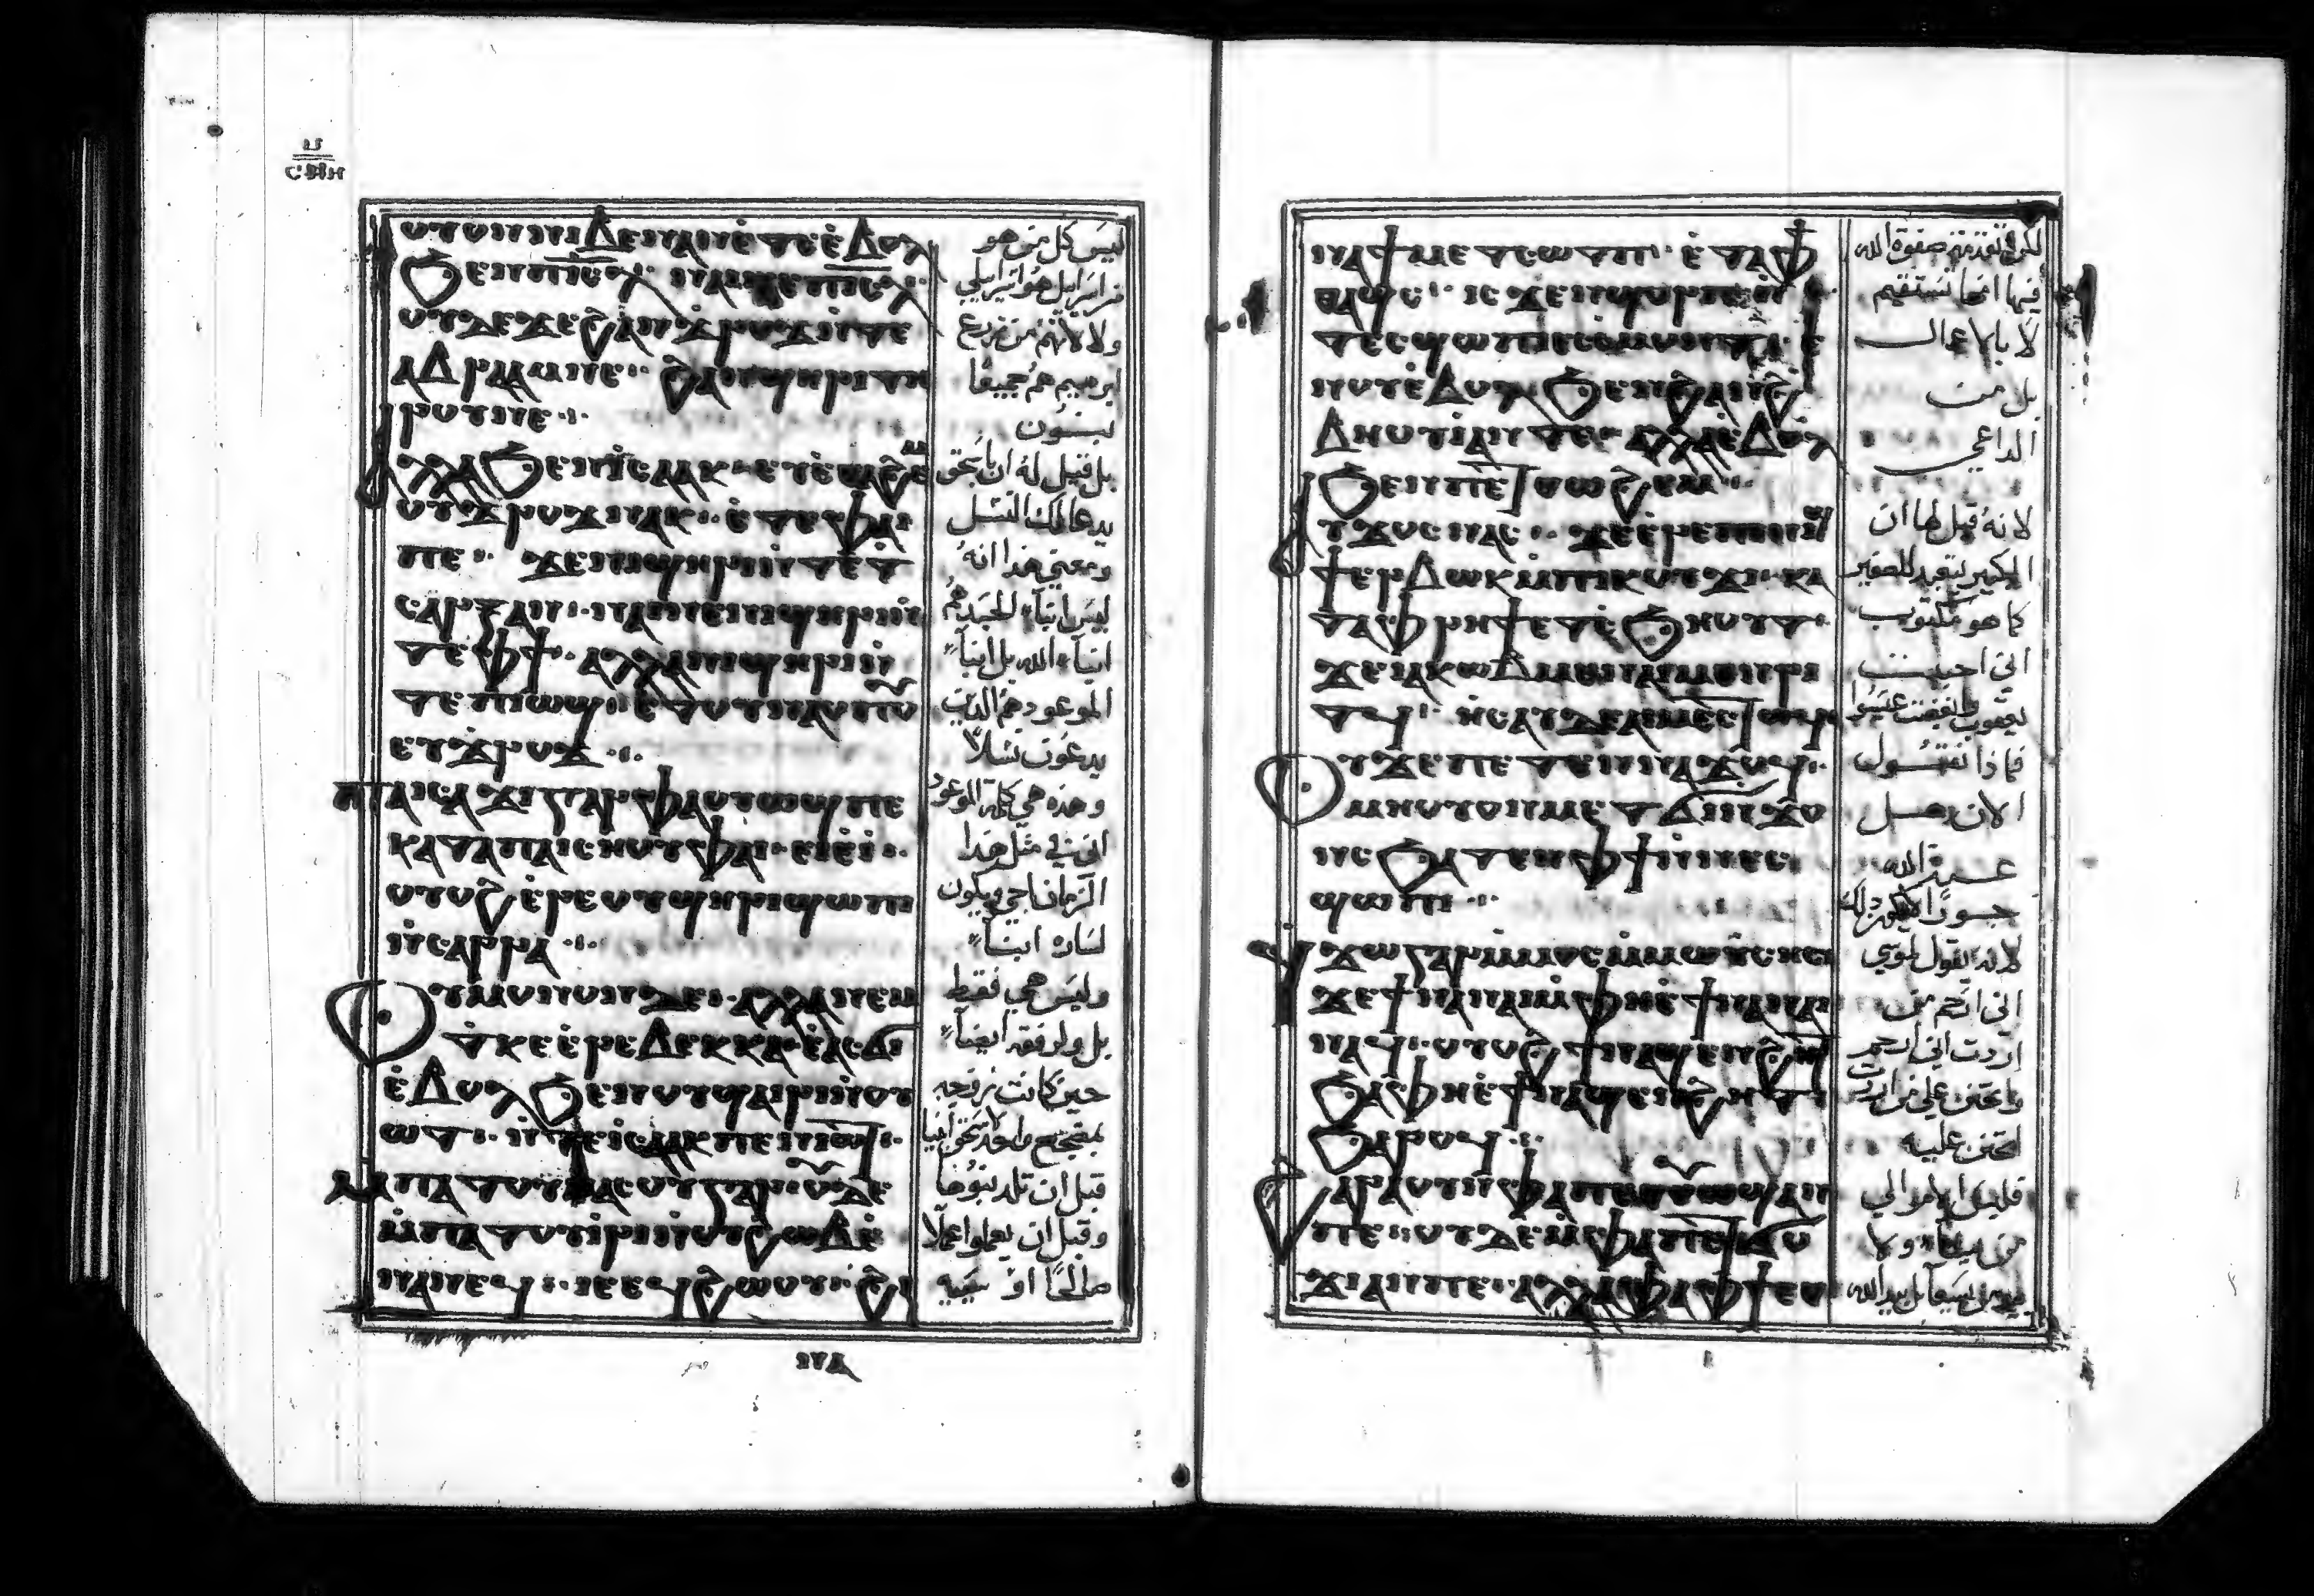 ⲥⲙⲏ
ⲟⲩⲟⲛⲛⲓⲃⲉⲛⲁⲛⲉ̇ⲧⲉⲉ̇ⲃⲟⲗ
ϧⲉⲛⲡⲓⲥⲗ ⲛⲁⲓⲛⲉⲡⲓⲥⲗ
ⲟⲩⲇⲉϫⲉϩⲁⲛϫⲣⲟϫⲛ̇ⲧⲉ
ⲁⲃⲣⲁⲁⲙⲛⲉ ϩⲁⲛϣⲏⲣⲓⲧⲏ
ⲣⲟⲩⲛⲉ
ⲁⲗⲗⲁϧⲉⲛⲓⲥⲁⲁⲕ ⲉⲩⲉ̇ⲑⲱϩⲉⲙ
ⲟⲩϫⲣⲟϫⲛⲁⲕ ⲉ̇ⲧⲉⲫⲁⲓ
ⲡⲉ ϫⲉⲛⲓϣⲏⲣⲓⲛ̇ⲧⲉϯ
ⲥⲁⲣⲝⲁⲛ ⲛⲁⲓⲛⲉⲛⲓϣⲏⲣⲓⲛ̇
ⲧⲉⲫϯ ⲁⲗⲗⲁⲛⲓϣⲏⲣⲓⲛ̇
ⲧⲉⲡⲓⲱϣ ⲉ̇ⲧⲟⲩⲛⲁⲟⲡⲟⲩ
ⲉⲩϫⲣⲟϫ
ⲡⲁⲓⲥⲁϫⲓⲅⲁⲣⲫⲁⲟⲩⲱϣⲡⲉ
ⲕⲁⲧⲁⲡⲁⲓⲥⲏⲟⲩⲫⲁⲓ ⲉⲓⲉ̇ⲓ̇
ⲟⲩⲟϩⲉ̇ⲣⲉⲟⲩϣⲏⲣⲓϣⲱⲡⲓ
ⲛ̇ⲥⲁⲣⲣⲁ
ⲟⲩⲙⲟⲛⲟⲛⲇⲉ ⲁⲗⲗⲁⲛⲉⲙ
ϯⲕⲉⲉ̇ⲣⲉⲃⲉⲕⲕⲁ ⲉ̇ⲁⲥϭⲓ
ⲉ̇ⲃⲟⲗϧⲉⲛⲟⲩϣⲁⲓⲣⲓⲛ̇ⲟⲩ
ⲱⲧ ⲛ̇ⲧⲉⲓⲥⲁⲁⲕⲡⲉⲛⲓⲱⲧ
ⲙ̇ⲡⲁⲧⲟⲩⲙⲁⲥⲟⲩⲅⲁⲣ ⲟⲩⲇⲉ
ⲙ̇ⲡⲁⲧⲟⲩⲓ̇ⲣⲓⲛ̇ⲟⲩϩⲱⲃⲉ̇
ⲛⲁⲛⲉϥ ⲓⲉⲉϥϩⲱⲟⲩ ϩⲓ
ليس كل من هو
من اسراييل هو اسراييلي
ولا لانهم من زرع
ابرهيم هم جميعًا
بنون
بل قيل له ان باسحق
يدعا لك النسل
ومعني هذا انه
ليس ابنآء الجسد هم
ابنآء الله بل ابنآء
الموعود هم الذين
يدعون نسلًا
وهذه هي كلمة الموعود
اني في مثل هذا
الزمان اجي ويكون
لساره ابنآ
وليس هي فقط
بل ولرفقه ايضآ
حين كانت مزوجه
بمضجع واحد لاسحق ابينا
قبل ان تلد بنوها
وقبل ان يعملوا عملًا
صالحًا او سييه
ⲛⲁϯⲙⲉⲧⲥⲱⲧⲡ ⲉ̇ⲧⲁⲫϯ
ⲑⲁϣⲥ ⲓⲥϫⲉⲛϣⲟⲣⲡ
ⲧⲉⲥϣⲱⲡⲓ
ⲛⲟⲩⲉ̇ⲃⲟⲗϧⲉⲛϩⲁⲛϩ
ⲃⲏⲟⲩⲓ̇ⲁⲛⲧⲉ ⲁⲗⲗⲁⲉ̇ⲃⲟⲗ
ϧⲉⲛⲡⲉⲧⲑⲱϩⲉⲙ
ⲁⲩϫⲟⲥⲛⲁⲥ ϫⲉⲉ̇ⲣⲉⲡⲓⲛⲓϣ
ϯⲉⲣⲃⲱⲕⲙ̇ⲡⲓⲕⲟⲩϫⲓ ⲕⲁ
ⲧⲁⲫⲣⲏϯⲉⲧⲥ̇ϧⲏⲟⲩⲧ
ϫⲉⲓⲁⲕⲱⲃⲙⲉⲛⲁⲓⲙⲉⲛⲣⲓ
ⲧϥ ⲏⲥⲁⲩⲇⲉⲁⲓⲙⲉⲥⲧⲱϥ
ⲟⲩϫⲉⲡⲉⲧⲉⲛⲛⲁϫⲟϥ
ⲙⲏⲟⲩⲟⲛⲙⲉⲧϭⲓⲛ̇ϫⲟ
ⲛⲥϧⲁⲧⲉⲛⲫϯⲛ̇ⲛⲉⲥ
ϣⲱⲡⲓ
ϥϫⲱⲅⲁⲣⲙ̇ⲙⲟⲥⲙ̇ⲙⲱⲩ̈ⲥⲏⲥ
ϫⲉϯⲛⲁⲛⲁⲓⲙ̇ⲫⲏⲉ̇ϯⲛⲁⲛⲁⲓ
ⲛⲁϥ ⲟⲩⲟϩϯⲛⲁϣⲉⲛϩⲏⲧ
ϧⲁⲫⲏⲉ̇ϯⲛⲁϣⲉⲛϩⲏⲧ
ϧⲁⲣⲟϥ
ϩⲁⲣⲁⲟⲩⲛⲫⲁⲡⲉⲧⲟⲩⲱϣⲁⲛ
ⲡⲉ ⲟⲩⲇⲉⲙ̇ⲫⲁⲡⲉⲧϭⲟ
ϫⲓⲁⲛⲡⲉ ⲁⲗⲗⲁⲫⲁⲫϯⲉⲑ
صفوة الله
فيها انها تستقيم
لا بالاعمال
بل من
الداعي
لانه قيل لها ان
الكبير يتعبد للصغير
كما هو مكتوب
اني احببت
يعقوب وابغضت
فماذا نقول
الان هل
عند الله
لانه يقول لموسي
اني ارحم من
اردت اني ارحم
واتحنن علي من اردت
اتحنن عليه
من يشآ ولا
من يسعآ بل بيد الله